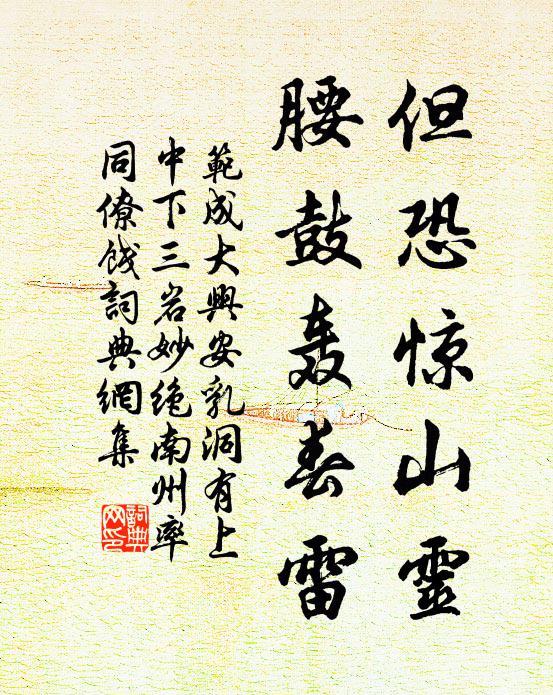 但恐惊山靈
腰鼓轰春雷
範成大興安乳洞有上
中下三岩妙绝南州率
同僚饯詞典網集
詞典
网印